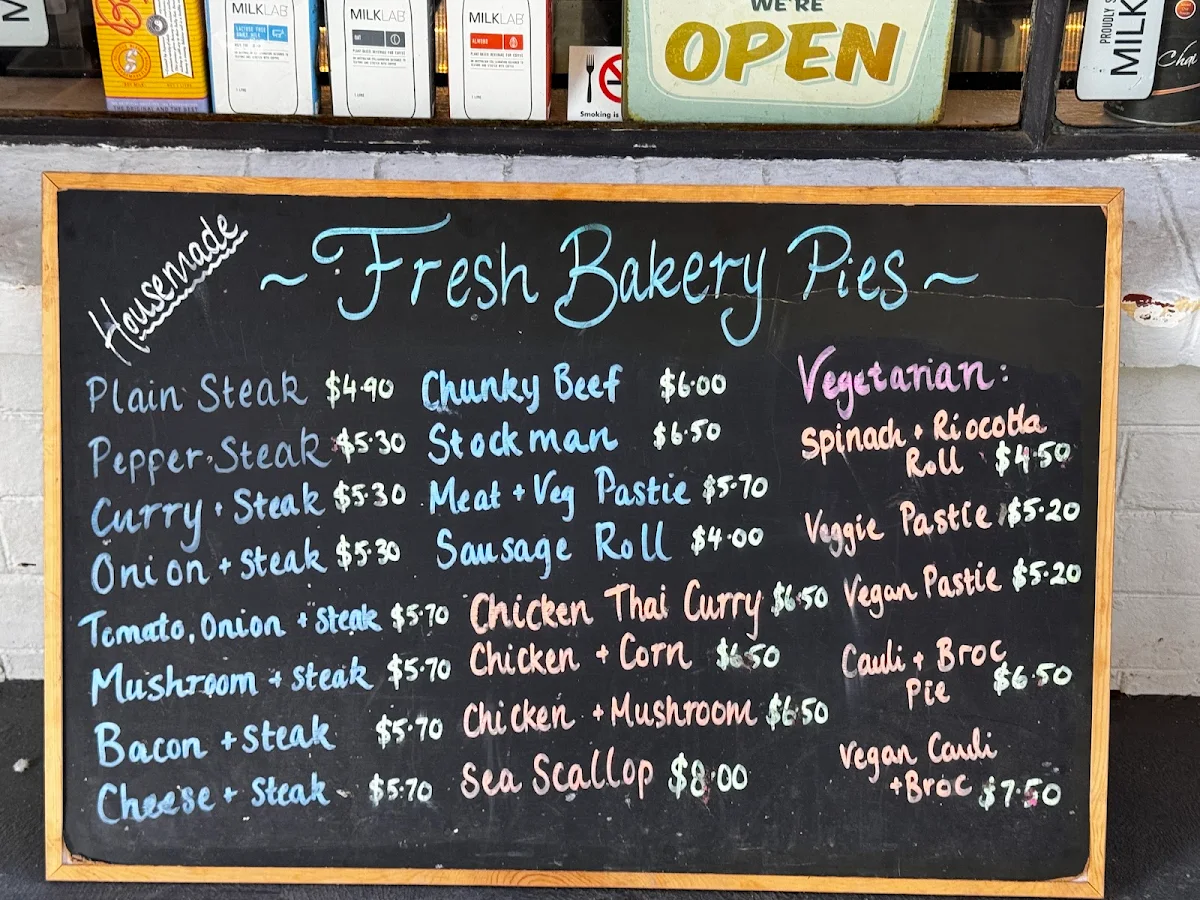 MILKLAB
MILKLAB
MILKLAB
LACTOSE FREE
OAT
ALMOND
1 LITRE
1 LITRE
THE ORIGINAL AND THE BEST
WE'RE
OPEN
Smoking is
PROUDLY S
MILK
Chai
Housemade
~ Fresh Bakery Pies ~
Plain Steak $4.90
Pepper Steak $5.30
Curry + Steak $5.30
Onion + Steak $5.30
Tomato, Onion + Steak $5.70
Mushroom + steak $5.70
Bacon + steak $5.70
Cheese + Steak $5.70
Chunky Beef $6.00
Stockman $6.50
Meat + Veg Pastie $5.70
Sausage Roll $4.00
Chicken Thai Curry $6.50
Chicken + Corn $6.50
Chicken + Mushroom $6.50
Sea Scallop $8.00
Vegetarian:
Spinach + Riocotta
Roll $4.50
Veggie Pastie $5.20
Vegan Pastie $5.20
Cauli + Broc
Pie $6.50
Vegan Cauli
+Broc $7.50